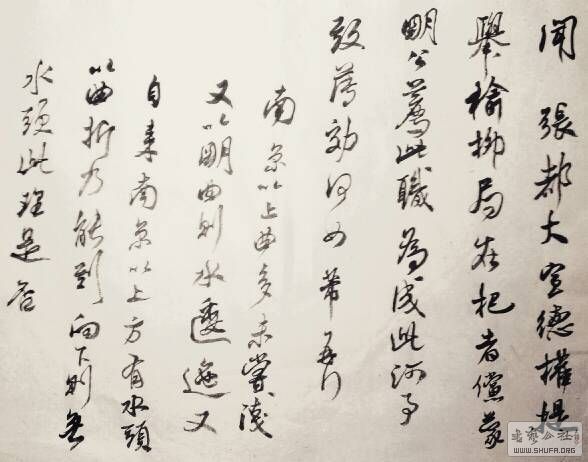 聞 張都大宣德權提
舉榆柳局在杞者儻蒙
明公薦此職為成此河事
致薦効何如芾再行
南京以上曲多未嘗淺
又以明曲則水逶迤又
自來南京以上方有水頭
以曲折乃能到向下則無
水頭此理是否
书艺公社
WWW.SHUFA.ORG